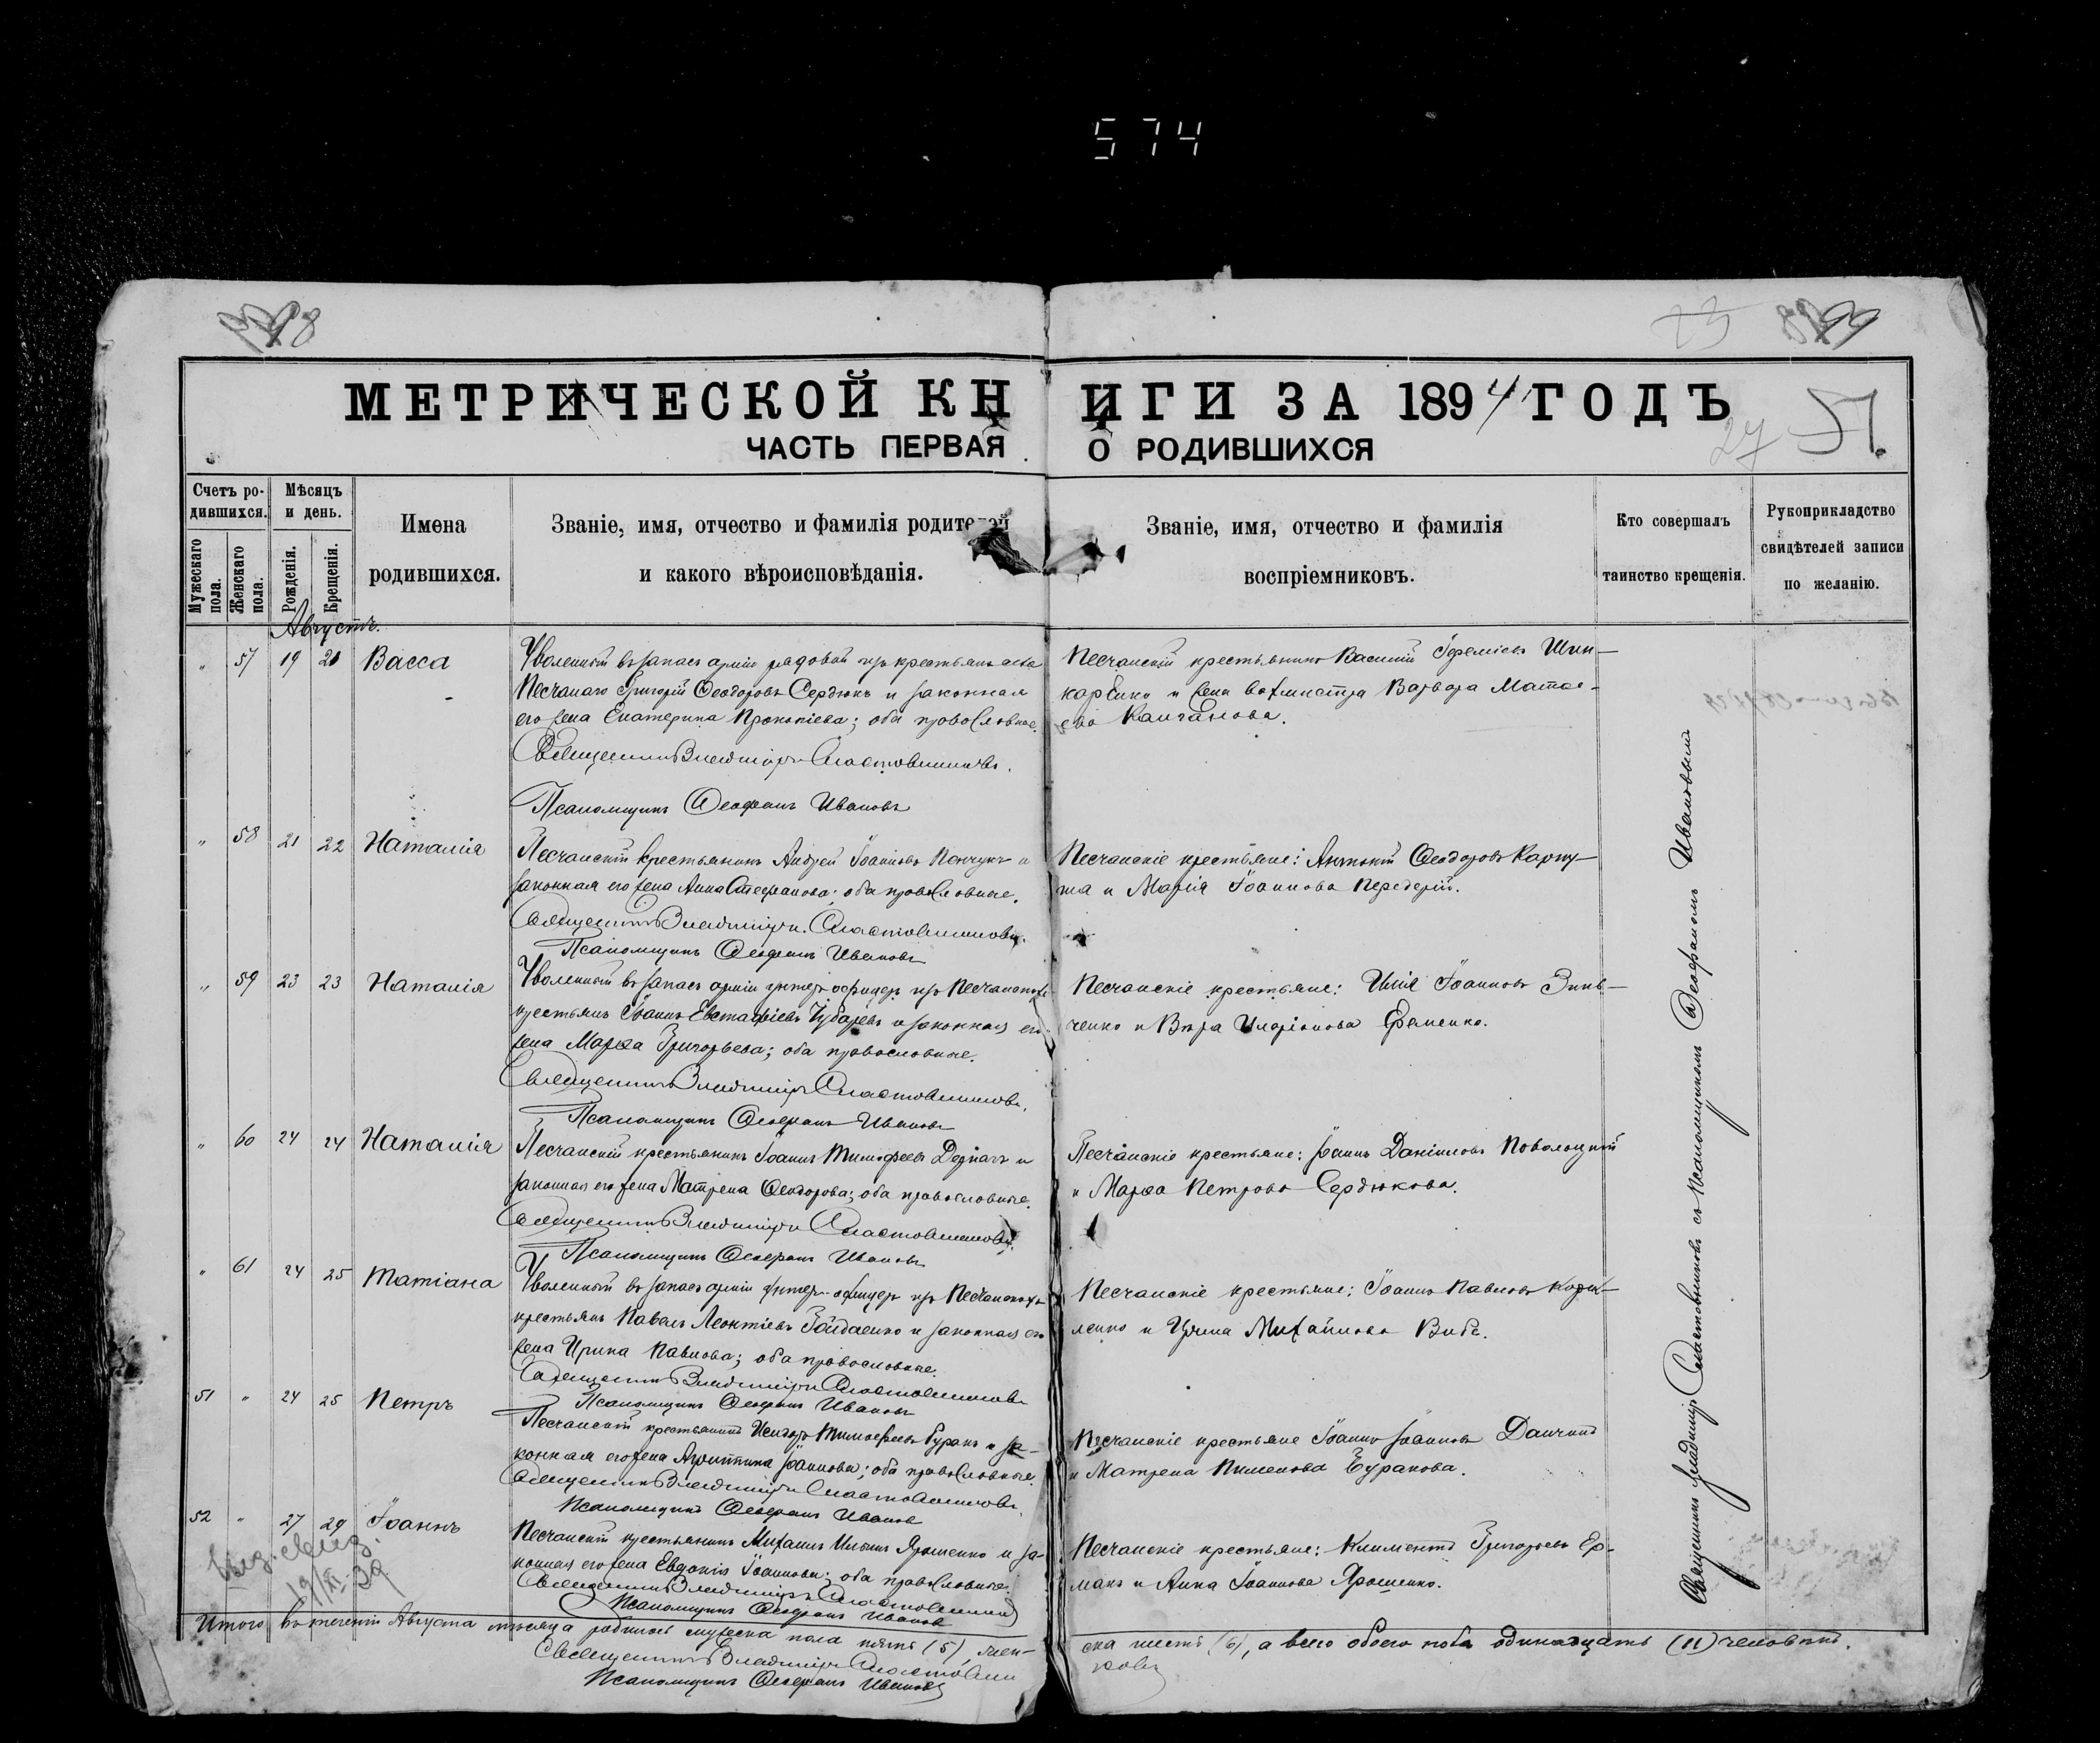 574
МЕТРИЧЕСКОЙ КНИГИ ЗА 1894 ГОДЪ
ЧАСТЬ ПЕРВАЯ О РОДИВШИХСЯ
27 51.
Счетъ ро-
дившихся.
Мужескаго пола.
Женскаго пола.
Мѣсяцъ
и день.
Рожденія.
Крещенія.
Имена
родившихся.
Званіе, имя, отчество и фамилія родителей
и какого вѣроисповѣданія.
Званіе, имя, отчество и фамилія
воспріемниковъ.
Кто совершалъ
таинство крещенія.
Рукоприкладство
свидѣтелей записи
по желанію.
Августъ.
" 57 19 21 Васса
Уволенный въ запасъ арміи рядовой изъ крестьянъ села
Песчанаго Григорій Ѳеодоровъ Сердюкъ и законная
его жена Екатерина Прокопіева; оба православные.
Священникъ Владиміръ Сластовниковъ.
Псаломщикъ Ѳеофанъ Ивановъ
Песчанскій крестьянинъ Василій Іереміевъ Шин-
каренко и жена вахмистра Варвара Матѳе-
ева
" 58 21 22 Наталія
Песчанскій крестьянинъ Андрей Іоанновъ и
законная его жена Анна Стефанова; оба православные.
Священникъ Владиміръ Сластовниковъ.
Псаломщикъ Ѳеофанъ Ивановъ
Песчанскіе крестьяне: Антоній Ѳеодоровъ Карпу-
ша и Марія Іоаннова Передерій.
" 59 23 23 Наталія
Уволенный въ запасъ арміи унтеръ офицеръ изъ Песчанскихъ
крестьянъ Іоаннъ Евстафіевъ Чубаревъ и законная его
жена Марѳа Григорьева; оба православные.
Священникъ Владиміръ Сластовниковъ.
Псаломщикъ Ѳеофанъ Ивановъ
Песчанскіе крестьяне: Илія Іоанновъ Зинь-
ченко и Вѣра Иларіонова Ефименко.
" 60 24 24 Наталія
Песчанскій крестьянинъ Іоаннъ Тимоѳеевъ и
законная его жена Матрена Ѳеодорова; оба православные.
Священникъ Владиміръ Сластовниковъ.
Псаломщикъ Ѳеофанъ Ивановъ
Песчанскіе крестьяне: Іоаннъ Даніиловъ Поволоцкій
и Марѳа Петрова Сердюкова.
" 61 24 25 Татіана
Уволенный въ запасъ арміи унтеръ-офицеръ изъ Песчанскихъ
крестьянъ Павелъ Леонтіевъ Гайдаенко и законная его
жена Ирина Павлова; оба православные.
Священникъ Владиміръ Сластовниковъ
Псаломщикъ Ѳеофанъ Ивановъ
Песчанскіе крестьяне: Іоаннъ Павловъ Кори-
ленко и Ирина Михайлова
51 " 24 25 Петръ
Песчанскій крестьянинъ Исидоръ Тимоѳеевъ Буракъ и за-
конная его жена Агриппина Іоаннова; оба православные
Священникъ Владиміръ Сластовниковъ.
Псаломщикъ Ѳеофанъ Ивановъ
Песчанскіе крестьяне Іоаннъ Іоанновъ
и Матрена Пименова Буракова.
52 " 27 29 Іоаннъ
Песчанскій крестьянинъ Михаилъ Ильинъ Ярошенко и за-
конная его жена Евдокія Іоаннова; оба православные.
Священникъ Владиміръ Сластовниковъ
Псаломщикъ Ѳеофанъ Ивановъ
Песчанскіе крестьяне: Климентъ Григорьевъ Ер-
макъ и Анна Іоаннова Ярошенко.
Священникъ Владиміръ Сластовниковъ съ псаломщикомъ Ѳеофаномъ Ивановымъ
19/XI-39
Итого въ теченіи Августа мѣсяца родилось мужеска пола пять (5), жен-
ска шесть (6), а всего обоего пола одинадцать (11) человѣкъ.
Священникъ Владиміръ Сластовниковъ
Псаломщикъ Ѳеофанъ Ивановъ